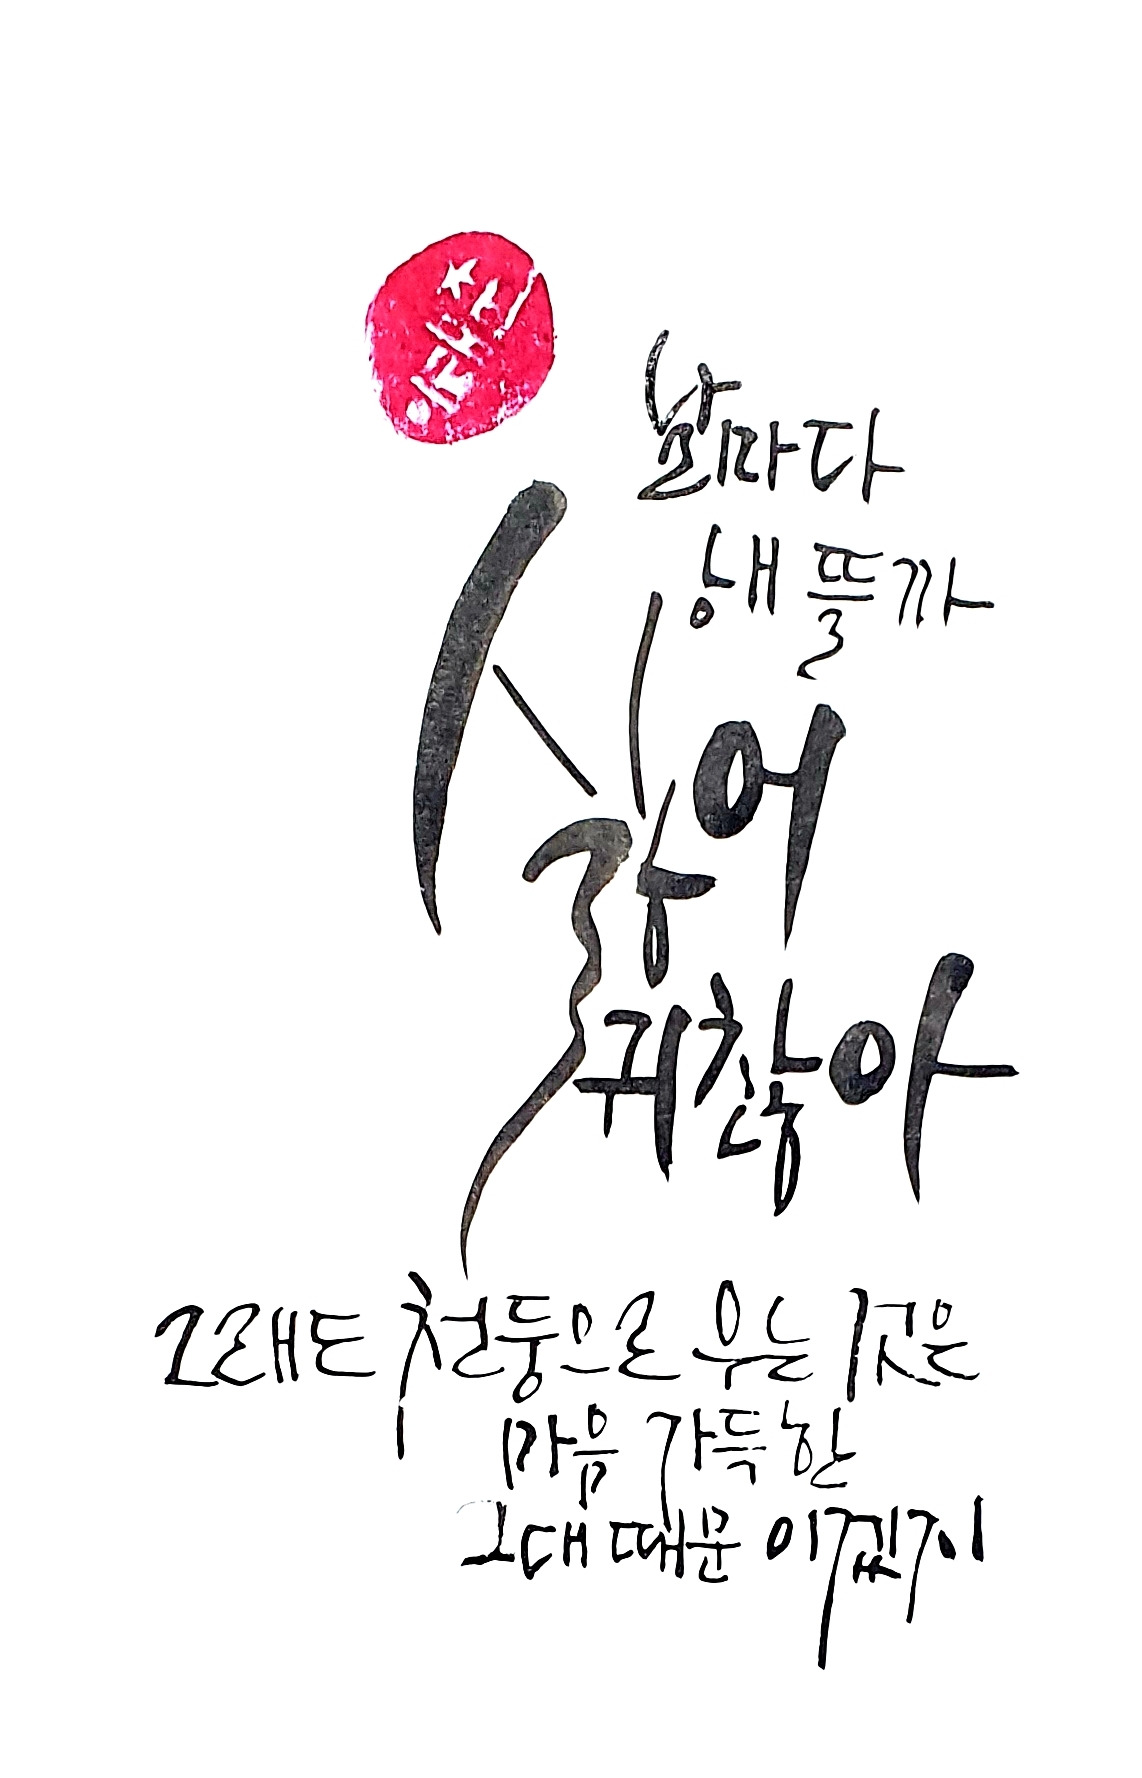 날마다
해 뜰까
싫어
귀찮아
그래도 천둥으로 우는 것은
마음 가득한
그대 때문 이겠지